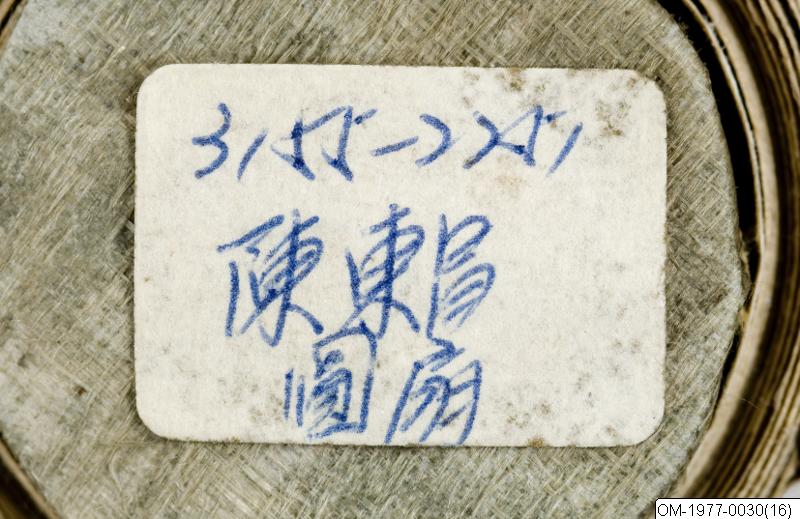 3155-2251
陳東昌
圓扇
OM-1977-0030(16)